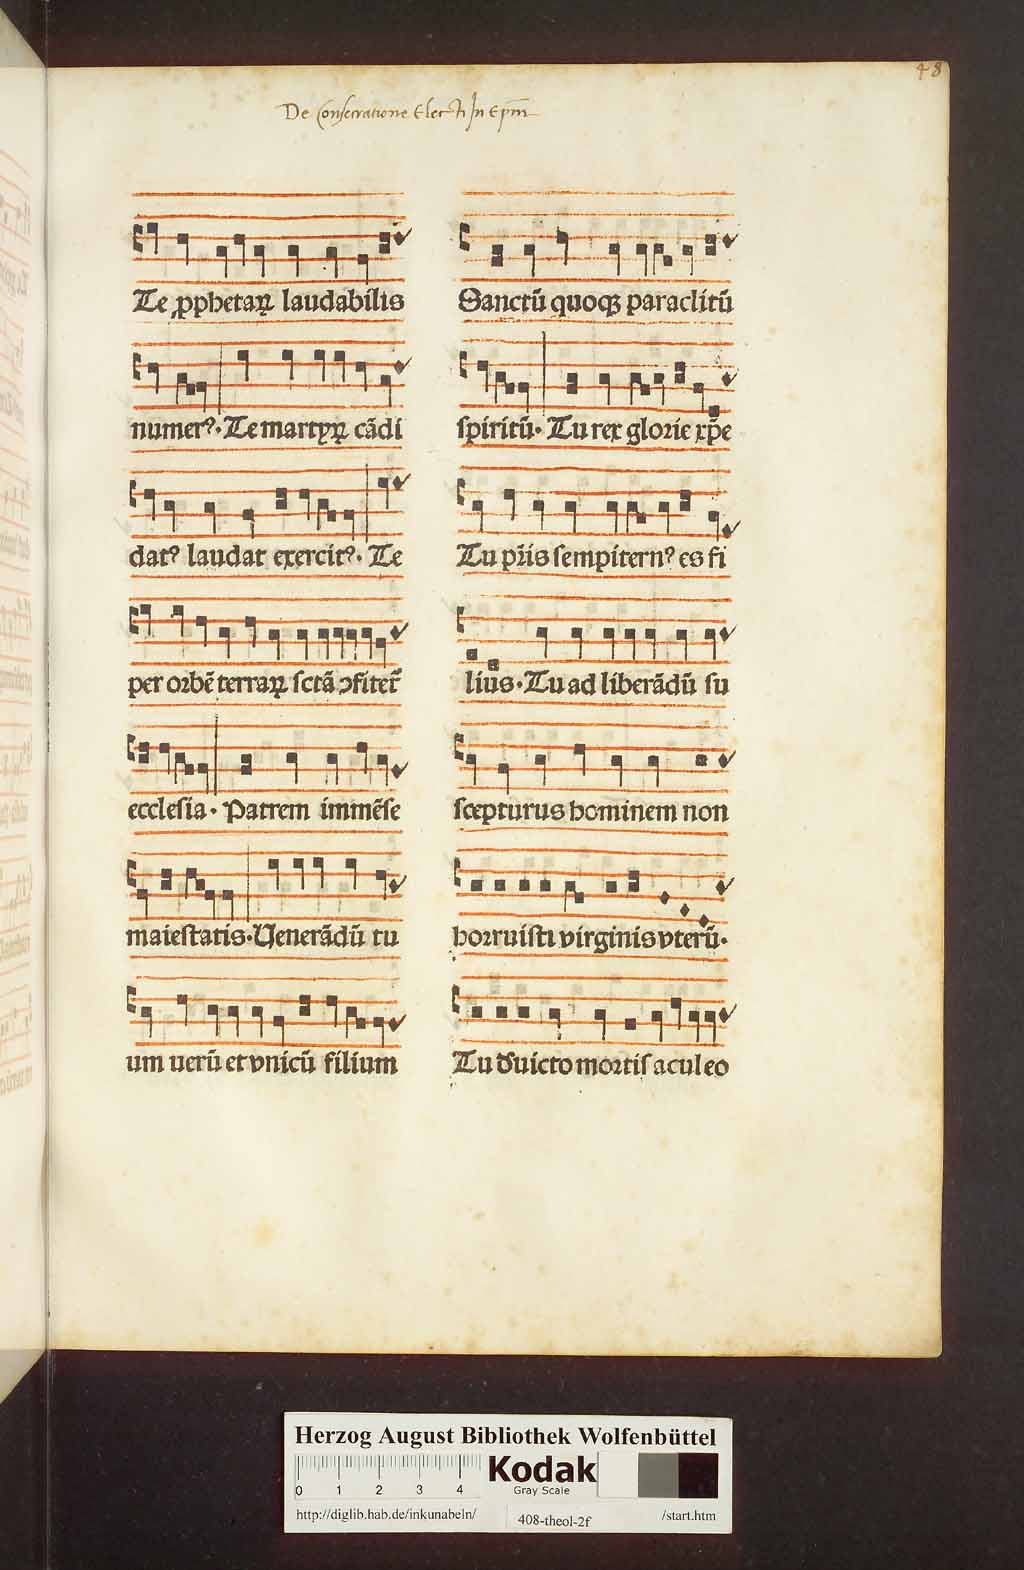 48
De Consecratione Electi In Ep̄m
Te ꝓphetaꝝ laudabilis
numerꝰ. Te martyꝝ cādi
datꝰ laudat exercitꝰ. Te
per orbē terraꝝ sctā ↄfitet᷑
ecclesia. Patrem immēse
maiestatis. Uenerādū tu
um uerū et vnicū filium
Sanctū quoqꝫ paraclitū
spiritū. Tu rex glorie xp̄e
Tu pr̄is sempiternꝰ es fi
lius. Tu ad liberādū su
scepturus hominem non
horruisti virginis vterū.
Tu d̓uicto mortis aculeo
Herzog August Bibliothek Wolfenbüttel
0 1 2 3 4
Kodak
Gray Scale
http://diglib.hab.de/inkunabeln/ 408-theol-2f /start.htm